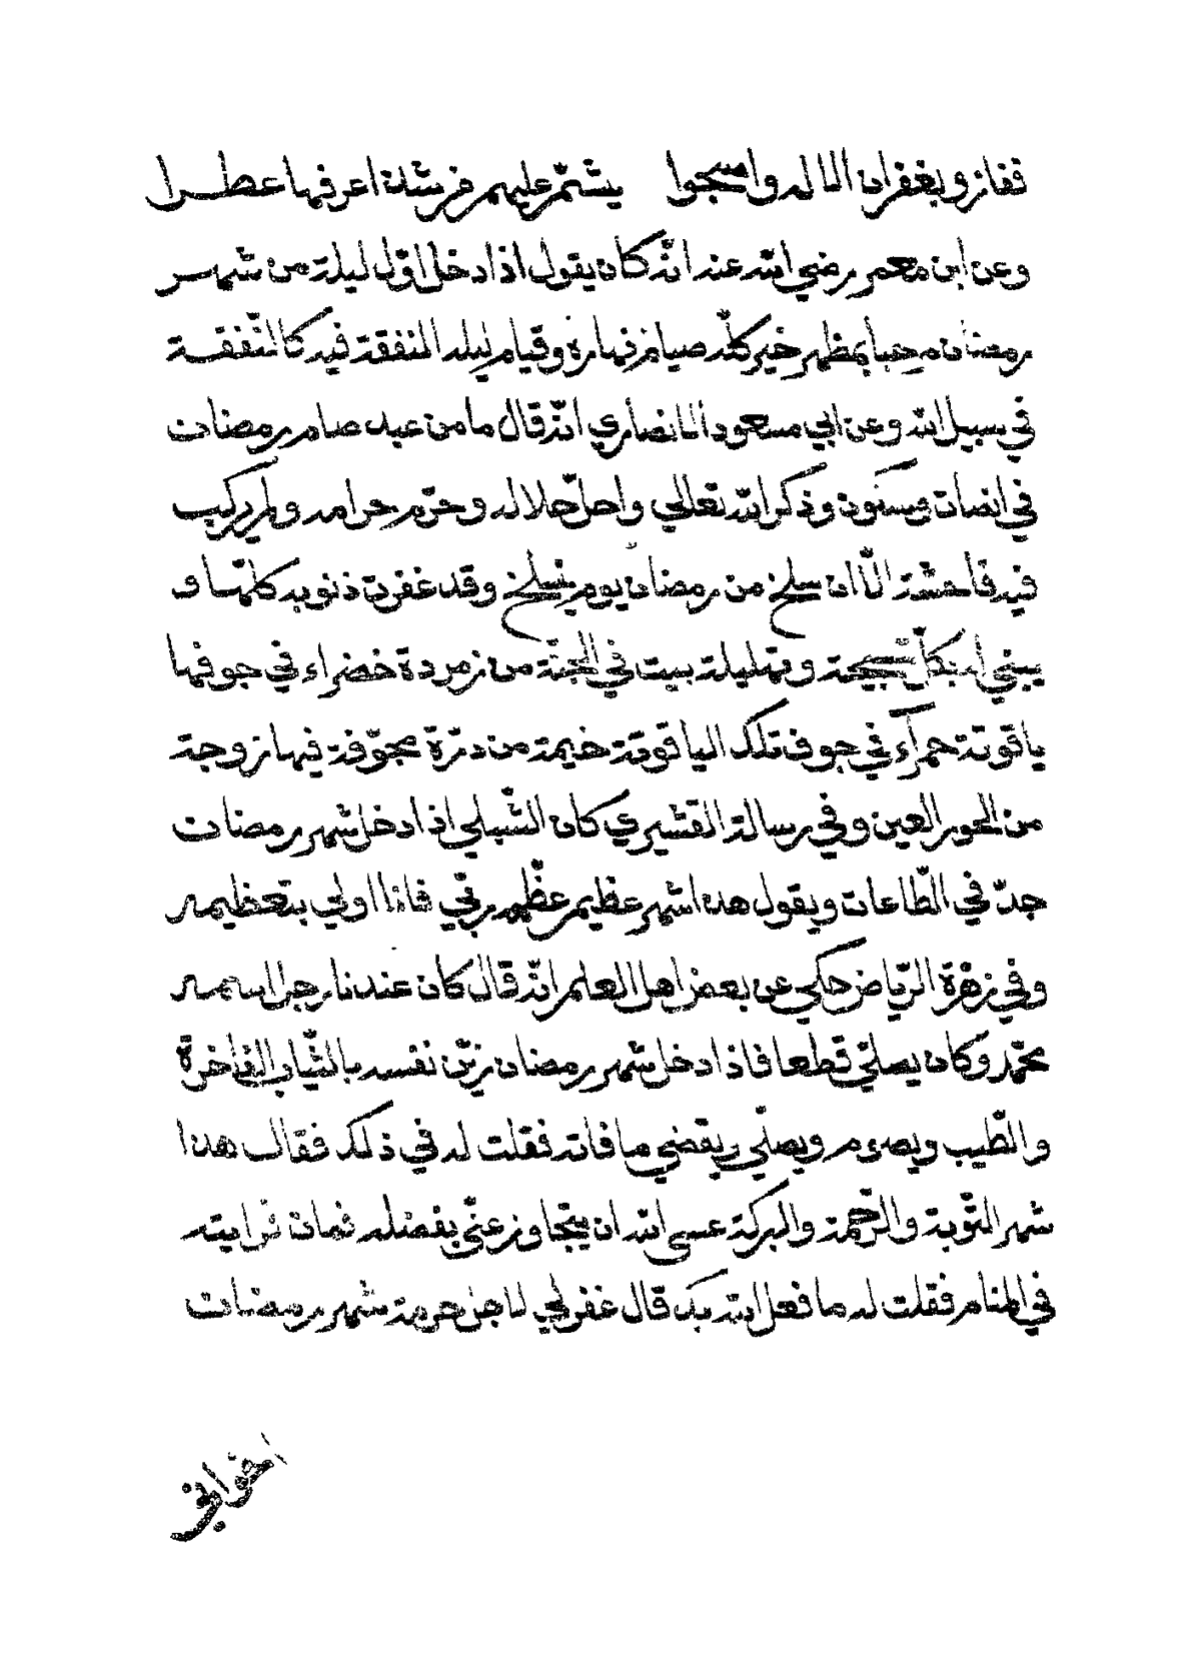 ففازو بغفران الاله واصبحوا يشتمّ عليهم من شذاعرفها عطرا
وعن ابن معمر رضي الله عنه انّه كان يقول اذا دخل اوّل ليلة من شهر
رمضان مرحبا بمطهر خير كلّه صيام نهاره وقيام ليله المنفقة فيه كالنّفقة
في سبيل الله وعن ابي مسعود الانصاري انّه قال ما من عبد صام رمضان
في انصات وسكون وذكر الله تعالى واحلّ حلاله وحرّم حرامه ولم يركب
فيه فاحشة الّا ان سلخ من رمضان يوم ينسلخ وقد غفرت ذنوبه كلّها و
يبني له بكلّ تسبيحة وتهليلة بيت في الجنّة من زمردة خضراء في جوفها
ياقوتة حمرآء في جوف تلك الياقوتة خيمة من درّة مجوّفة فيها زوجة
من الحور العين وفي رسالة القشيري كان الشّبلي اذا دخل شهر رمضان
جدّ في الطّاعات ويقول هذا شهر عظيم عظّمه ربّي فانا اولي بتعظيمه
وفي زهرة الرّياض حكي عن بعض اهل العلم انّه قال كان عندنا رجل اسمه
محمّد وكان يصلّي قطعا فاذا دخل شهر رمضان زيّن نفسه بالثّياب الفاخرة
والطّيب ويصوم ويصلّي ويقضي ما فاته فقلت له في ذلك فقال هذا
شهر التّوبة والرّحمة والبركة عسى الله ان يتجاوز عنّي بفضله فمات فرايته
في المنام فقلت له ما فعل الله بك قال غفر لي لاجل حرمة شهر رمضان
اخواني